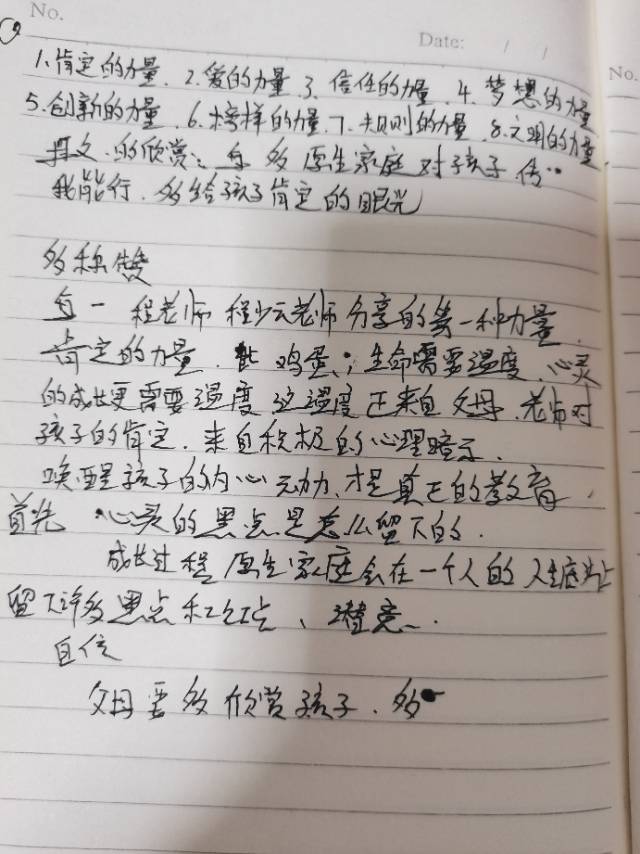 No.
Date: / /
No.
1.肯定的力量. 2.爱的力量 3.信任的力量. 4.梦想的力量
5.创新的力量. 6.榜样的力量. 7.规则的力量. 8.文明的力量
的欣赏: 多 原生家庭对孩子传
我能行. 多给孩子肯定的眼光
多称赞
一 程老师 程少云老师分享的第一种力量.
肯定的力量. 鸡蛋; 生命需要温度. 心灵
的成长更需要温度 这温度正来自父母. 老师对
孩子的肯定. 来自积极的心理暗示.
唤醒孩子的内心动力、才是真正的教育.
首先 心灵的黑点是怎么留下的.
成长过程 原生家庭会在一个人的人生底片上
留下许多黑点和红点、潜意.
自信
父母要多欣赏孩子. 多